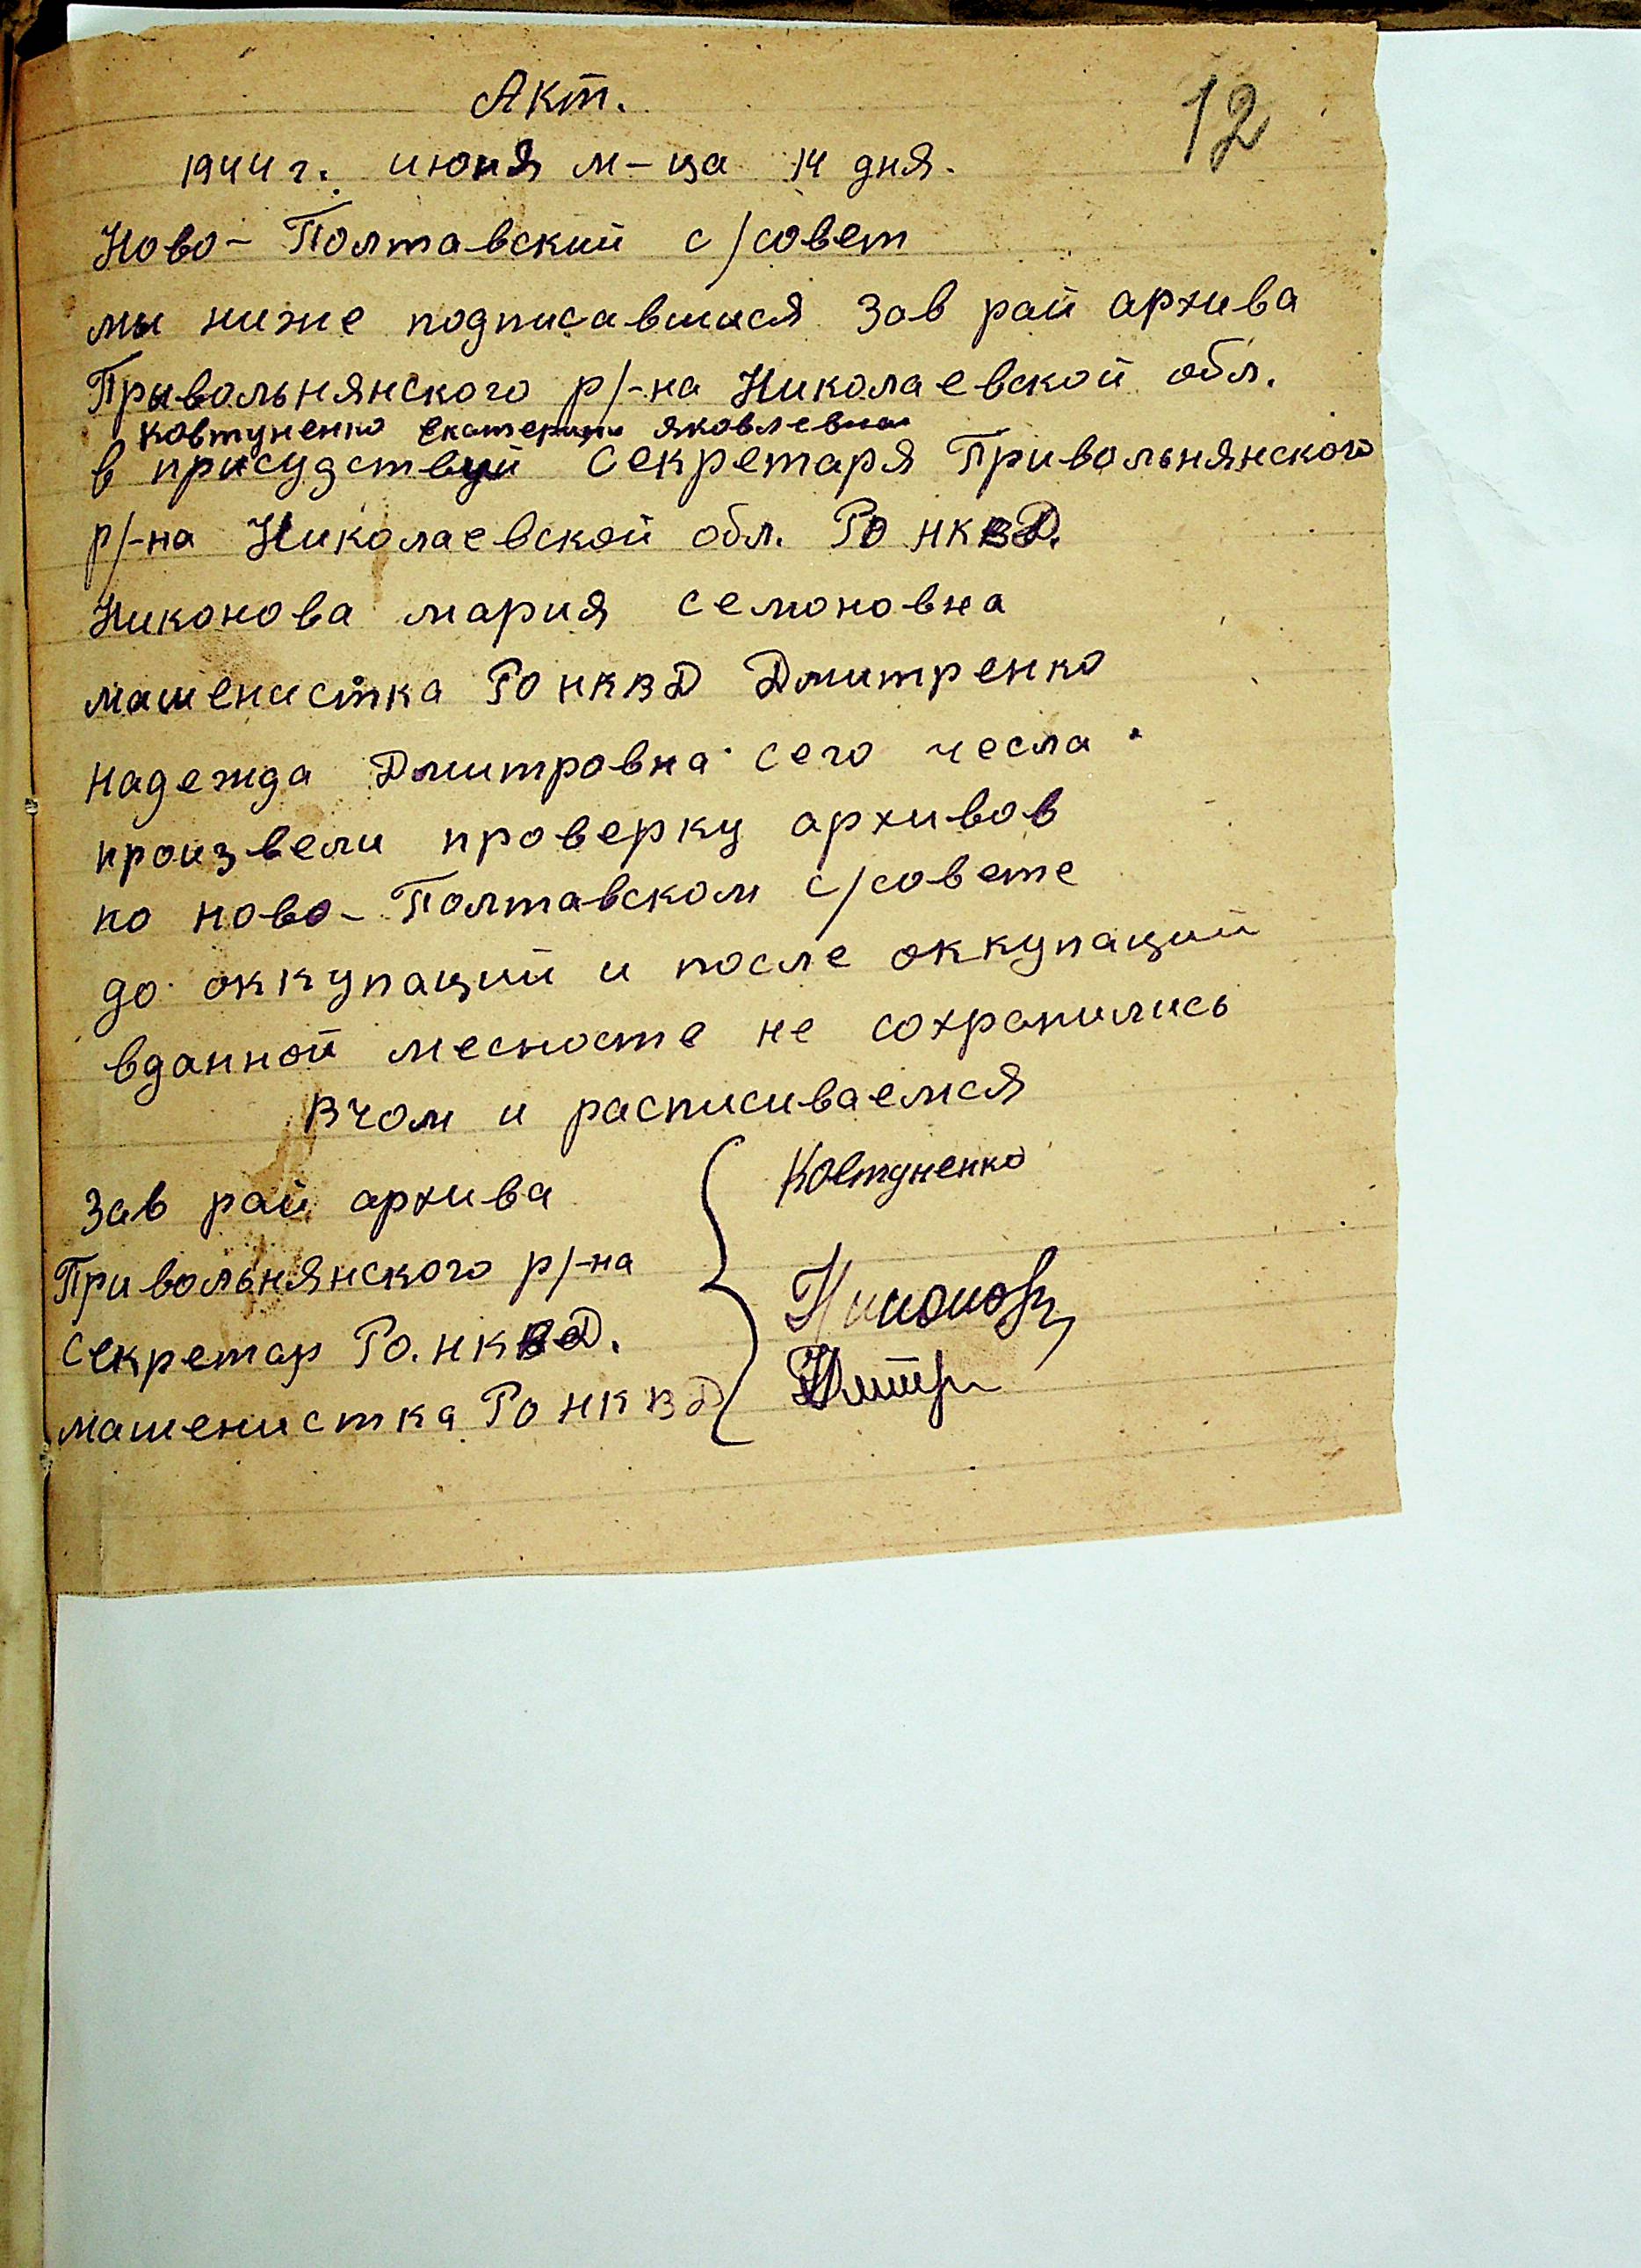 Акт.
12
1944 г. июня м-ца 14 дня.
Ново- Полтавский с/совет
мы ниже подписавшиися Зав рай архива
Привольнянского р/-на Николаевской обл.
Ковтуненко Екатерина Яковлевна
в присудствуй Секретаря Привольнянского
р/-на Николаевской обл. РО НКВД.
Никонова мария семоновна
машенистка РО НКВД Дмитренко
надежда Дмитровна сего чесла
произвели проверку архивов
по ново- Полтавском с/совете
до оккупаций и после оккупаций
вданной месносте не сохранились
В чом и расписиваемся
Зав рай архива
Ковтуненко
Привольнянского р/-на
Секретар РО. НКВД.
Никонова
машенистка РО НКВД